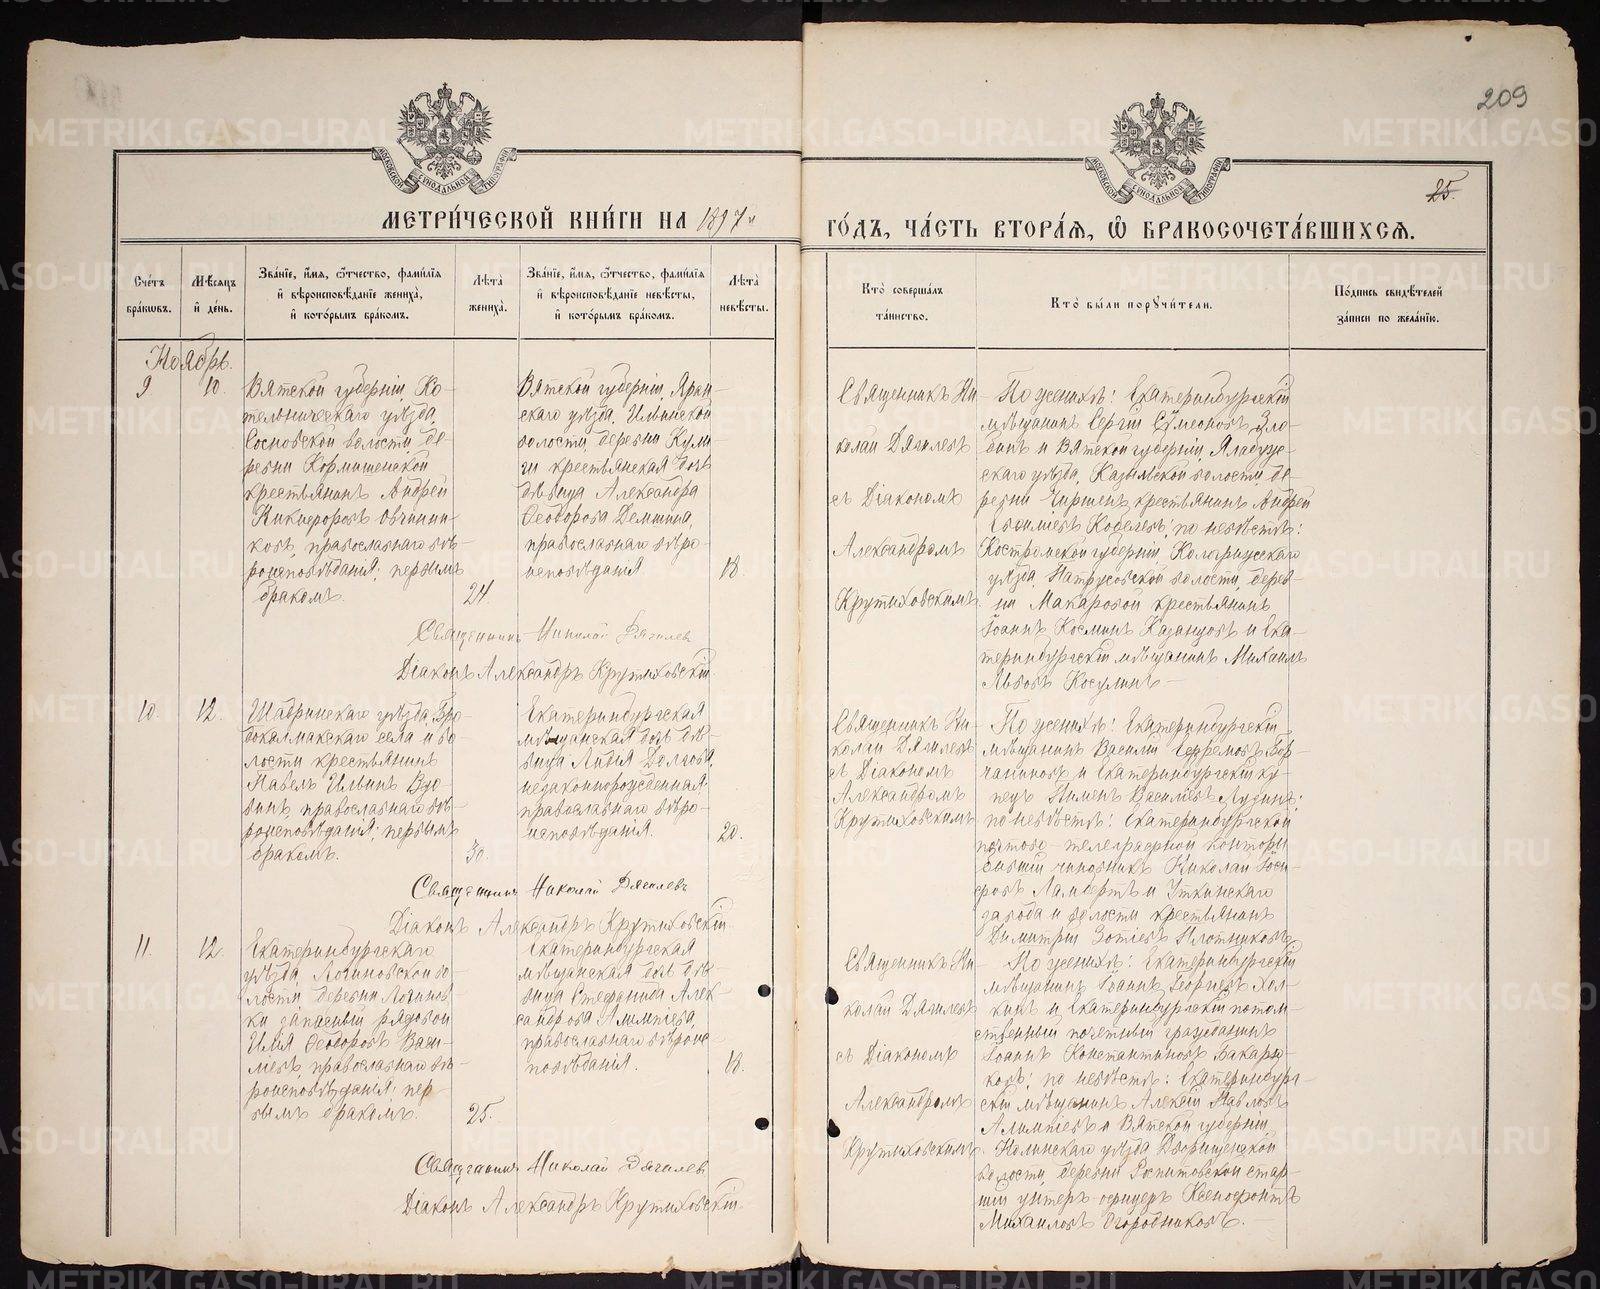 209
25.
МОСКОВСКОЙ СѴНОДАЛЬНОЙ ТИПОГРАФІИ
МОСКОВСКОЙ СѴНОДАЛЬНОЙ ТИПОГРАФІИ
МЕТРИ́ЧЕСКОЙ КНИ́ГИ НА 1897й
ГО́ДЪ, ЧА́СТЬ ВТОРА́Ѧ, Ѽ БРАКОСОЧЕТА́ВШИХСѦ.
Сче́тъ бра́кѡвъ.
Мѣ́сѧцъ и҆ де́нь.
Зва́нїе, и҆́мѧ, ѻ҆́тчество, фами́лїѧ и҆ вѣроисповѣ́данїе жениха̀, и҆ кото́рымъ бра́комъ.
Лѣ́та жениха̀.
Зва́нїе, и҆́мѧ, ѻ҆́тчество, фами́лїѧ и҆ вѣроисповѣ́данїе невѣ́сты, и҆ кото́рымъ бра́комъ.
Лѣ́та невѣ́сты.
Кто̀ соверша́лъ та́инство.
Кто̀ бы́ли порꙋчи́тели.
По́дпись свидѣ́телей за́писи по жела́нїю.
Ноябрь.
9
10.
Вятской губерніи, Ко-
тельническаго уѣзда,
Сосновской волости, де-
ревни
крестьянинъ Андрей
Никифоровъ Овчинни-
ковъ, православнаго вѣ-
роисповѣданія; первымъ
бракомъ.
24.
Вятской губерніи, Яран-
скаго уѣзда, Ильинской
волости, деревни
крестьянская дочь
дѣвица Александра
Ѳеодорова Демшина,
православнаго вѣро-
исповѣданія
18.
Священникъ Ни-
колай Дягилевъ
съ Діакономъ
Александромъ
Крутиховскимъ.
По женихѣ: Екатеринбургскій
мѣщанинъ Сергій Сѵмеоновъ Зло-
бинъ и Вятской губерніи,
скаго уѣзда, волости, де-
ревни крестьянинъ Андрей
по невѣстѣ:
Костромской губерніи, Кологривскаго
уѣзда, волости, дерев-
ни Макаровой крестьянинъ
Іоаннъ Косминъ Казанцовъ и Ека-
теринбургскій мѣщанинъ Михаилъ
Львовъ Косулинъ
Священникъ Николай Дягилевъ
Діаконъ Александръ Крутиховскій.
10.
12.
Шадринскаго уѣзда, Бро-
докалмакскаго села и во-
лости крестьянинъ
Павелъ Ильинъ Вдо-
винъ, православнаго вѣ-
роисповѣданія; первымъ
бракомъ.
30.
Екатеринбургская
мѣщанская дочь дѣ-
вица Лидія Долгова,
незаконнорожденная
православнаго вѣро-
исповѣданія.
20.
Священникъ Ни-
колай Дягилевъ
съ Діакономъ
Александромъ
Крутиховскимъ
По женихѣ: Екатеринбургскій
мѣщанинъ Василій
и Екатеринбургскій ку-
пецъ Пименъ Василіевъ
по невѣстѣ: Екатеринбургской
почтово-телеграфной конторы
бывшій чиновникъ Николай Іоси-
фовъ Ламбертъ и Уткинскаго
завода и волости крестьянинъ
Димитрій Зотіевъ Плотниковъ
Священникъ Николай Дягилевъ
Діаконъ Александръ Крутиховскій
11.
12.
Екатеринбургскаго
уѣзда, Логиновской во-
лости, деревни Логинов-
ки запасный рядовой
Илія Ѳеодоровъ Васи-
ліевъ, православнаго вѣ-
роисповѣданія; пер-
вымъ бракомъ.
25.
Екатеринбургская
мѣщанская дочь дѣ-
вица Стефанида Алек-
сандрова Алимпіева,
православнаго вѣроис-
повѣданія.
18.
Священникъ Ни-
колай Дягилевъ
съ Діакономъ
Александромъ
Крутиховскимъ.
По женихѣ: Екатеринбургскій
мѣщанинъ Іоаннъ Георгіевъ Хол-
кинъ и Екатеринбургскій потом-
ственный почетный гражданинъ
Іоаннъ Константиновъ Бакарю-
ковъ; по невѣстѣ: Екатеринбург-
скій мѣщанинъ Алексій Павловъ
Алимпіевъ и Вятской губерніи,
Нолинскаго уѣзда
волости, деревни стар-
шій унтеръ-офицеръ Ксенофонтъ
Михаиловъ Огородниковъ.
Священникъ Николай Дягилевъ
Діаконъ Александръ Крутиховскій.
METRIKI.GASO-URAL.RU